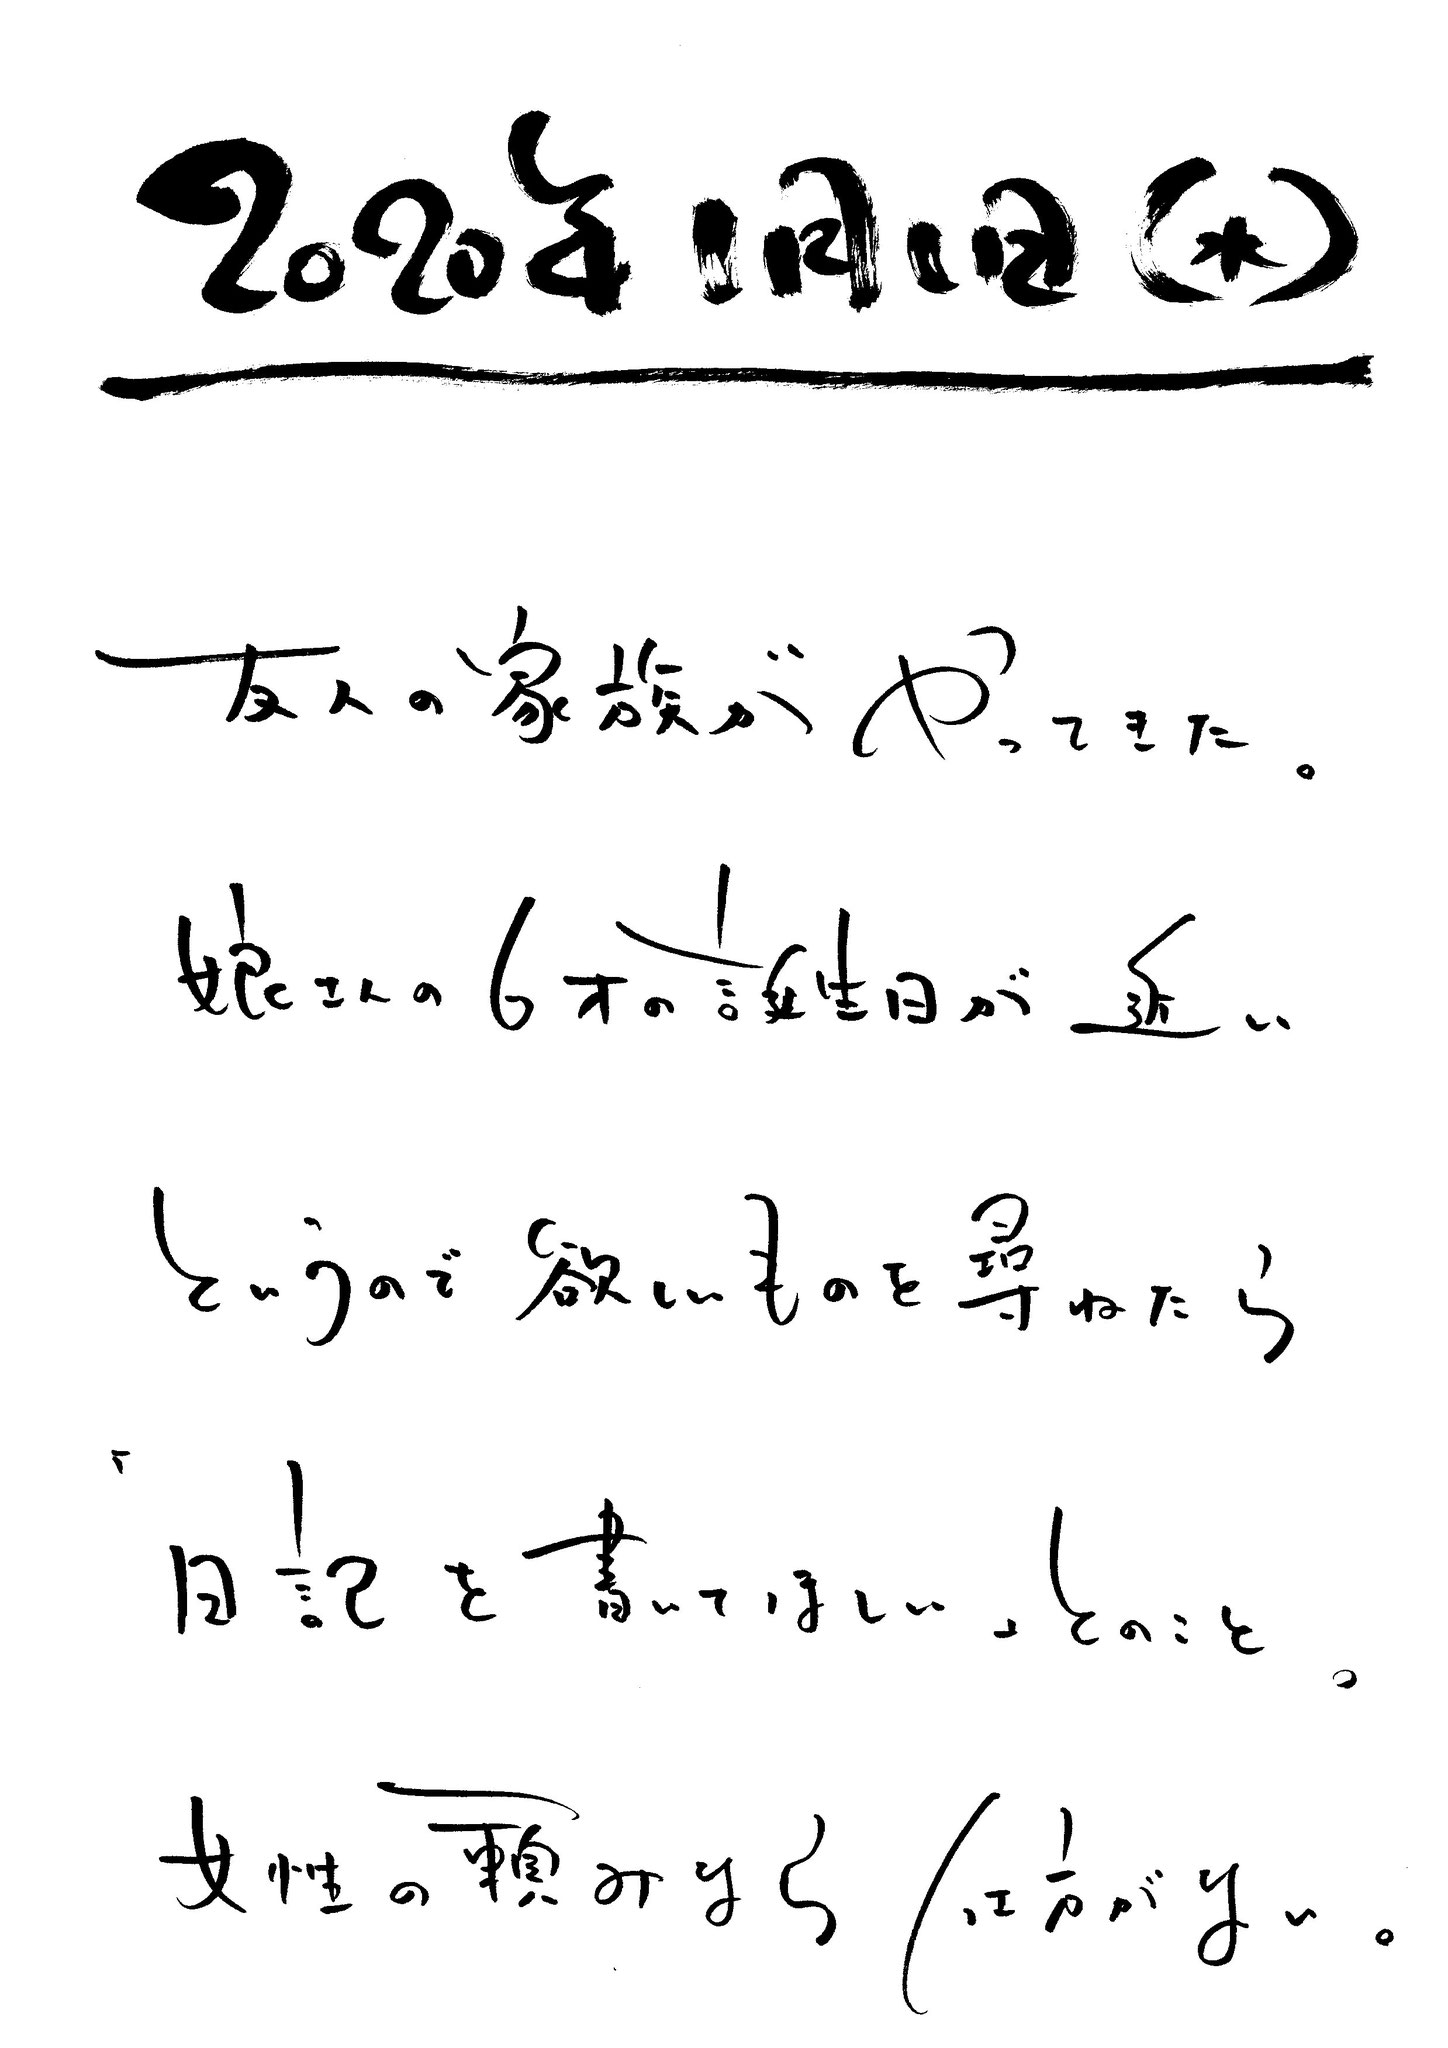 2020年1月1日(水)
友人の家族がやってきた。
娘さんの6才の誕生日が近い
というので欲しいものを尋ねたら
「日記を書いてほしい」とのこと。
女性の頼みなら仕方がない。